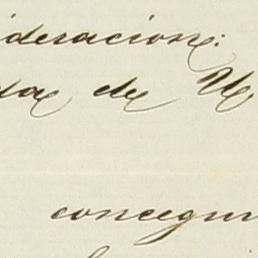 ideracion:
da de U
consegui